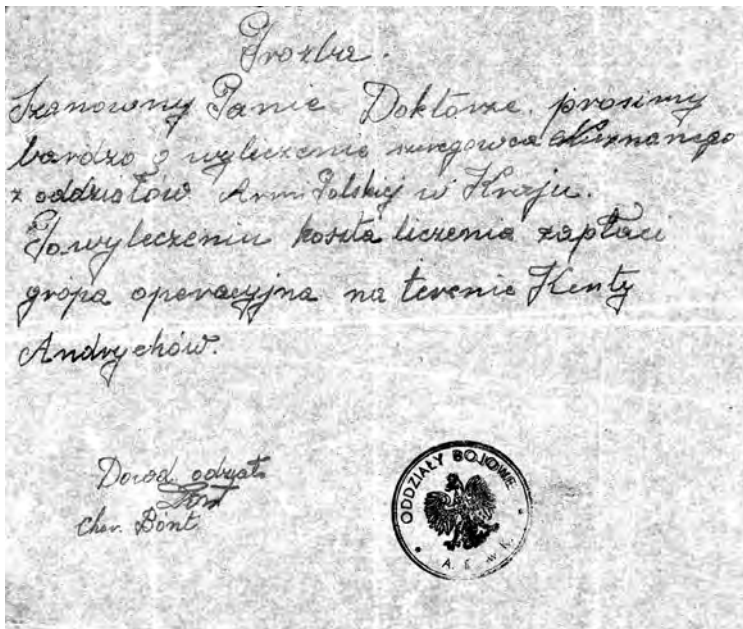 Prozba.
Szanowny Panie Doktorze, prosimy
bardzo o wyleczenie szeregowca Nieznanego
z oddziałów Armi Polskiej w Kraju.
Powyleczeniu koszta liczenia zapłaci
gropa operacyjna na terenie Kenty
Andrychów.
Dowod. odział.
Cher. Bónt
ODDZIAŁY BOJOWE
A. P. w K.